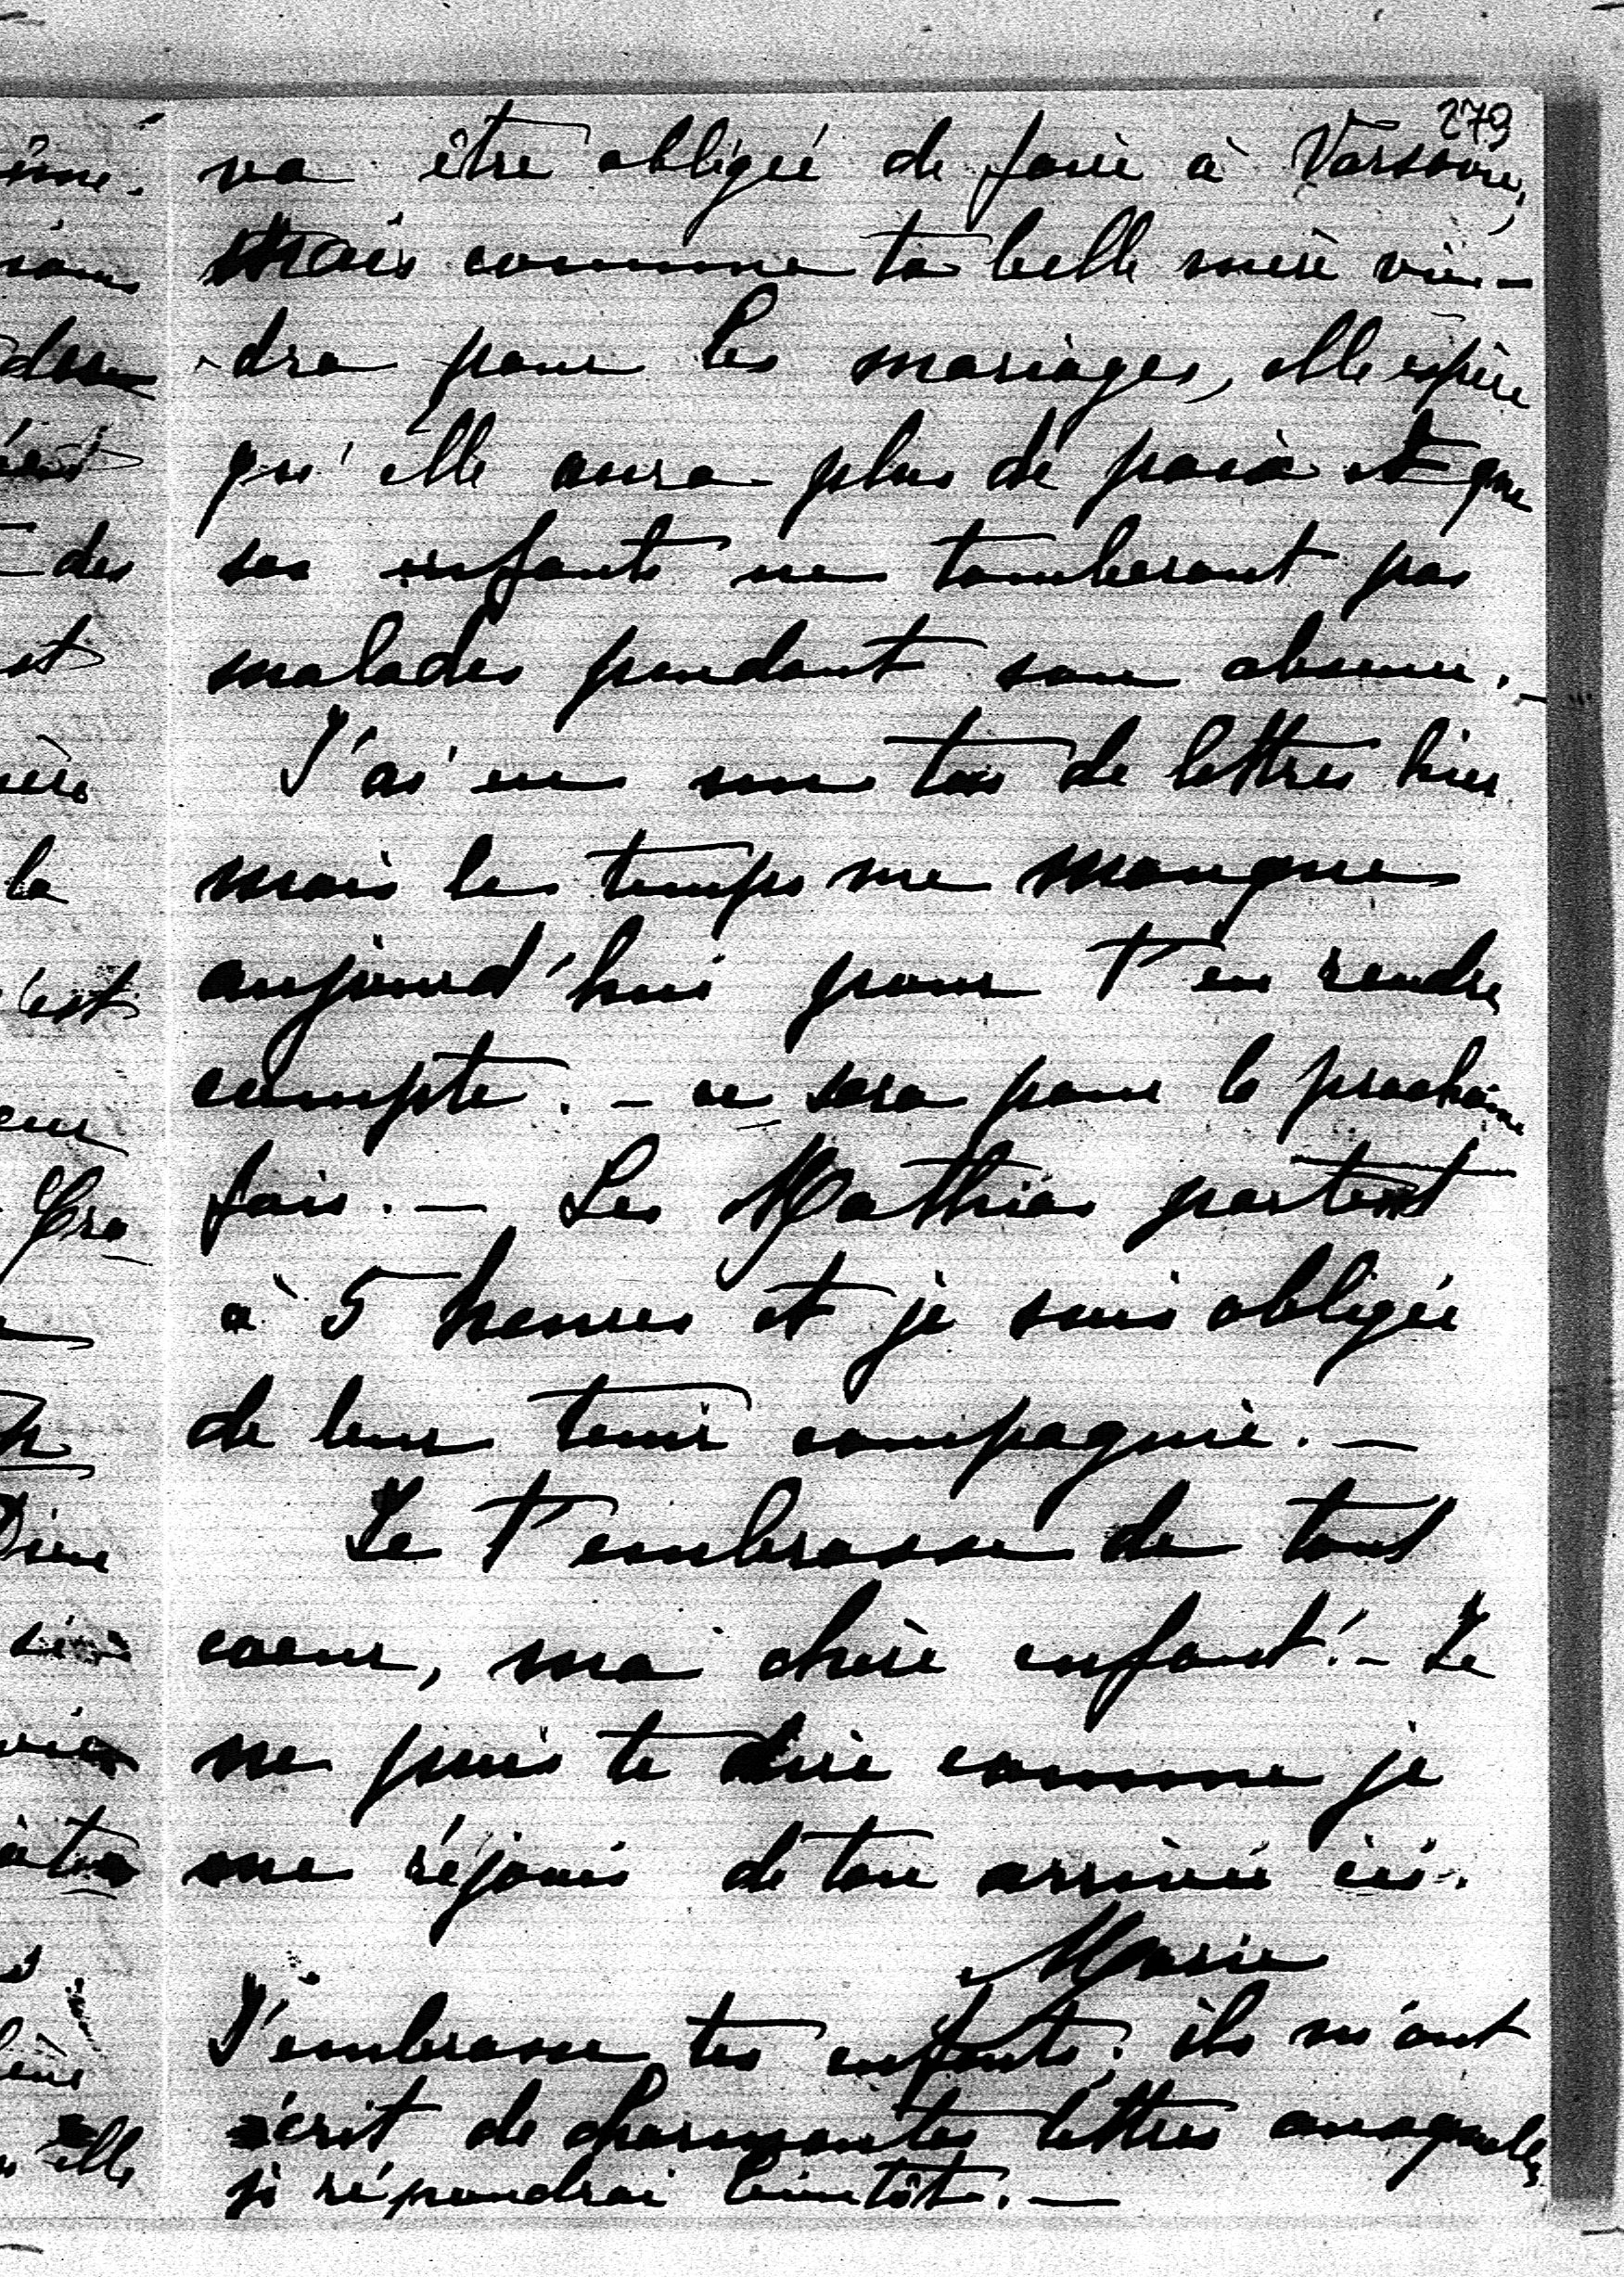 279
va être obligée de faire à Varsovie,
mais comme ta belle mère vien-
-dra pour les mariages, elle espère
qu'elle aura plus de paix et que
ses enfants ne tomberont pas
malades pendant son absence. -
J'ai eu un tas de lettres hier
mais le temps me manque
aujourd'hui pour t'en rendre
compte. - ce sera pour la prochaine
fois. - Les Mathias partent
à 5 heures et je suis obligée
de leur tenir compagnie. -
Je t'embrasse de tout
coeur, ma chère enfant! - Je
ne puis te dire comme je
me réjouis de ton arrivée ici.
Marie
J'embrasse tes enfants; ils m'ont
écrit de charmantes lettres auxquelles
je répondrai bientôt. -
des
et
la
c'est
elle